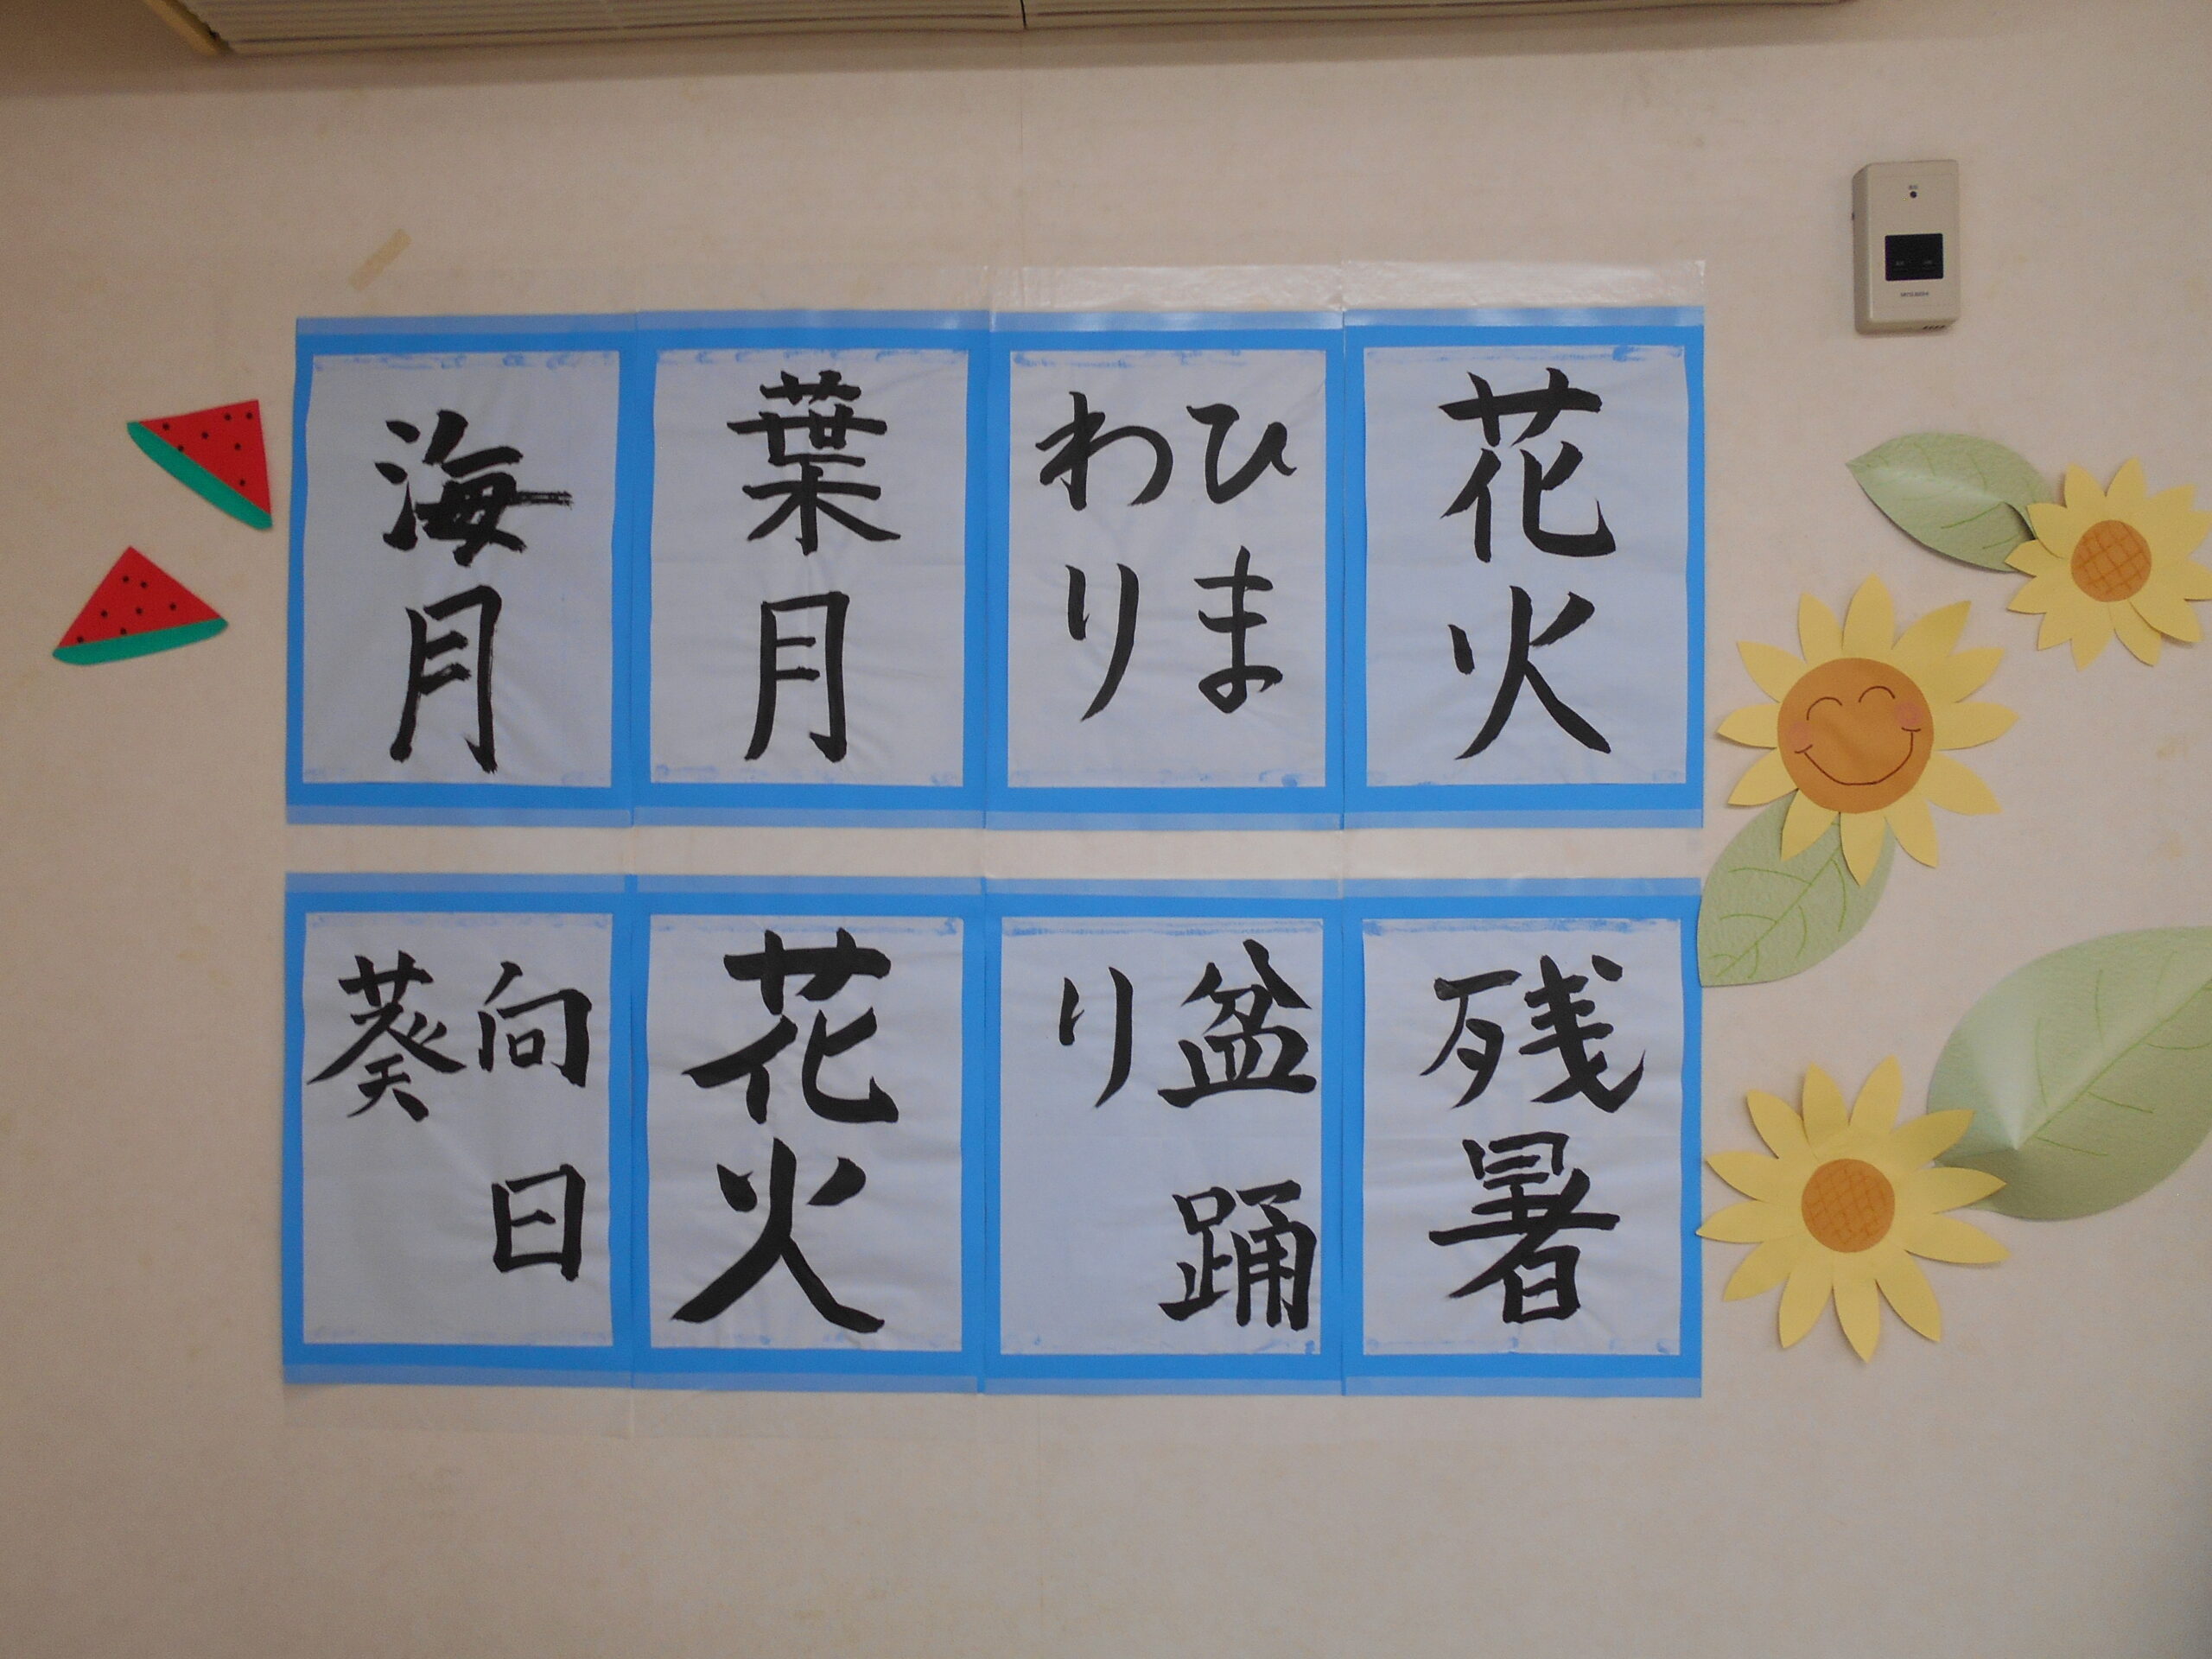 花火
ひま
わり
葉月
海月
残暑
盆踊
り
花火
向日
葵